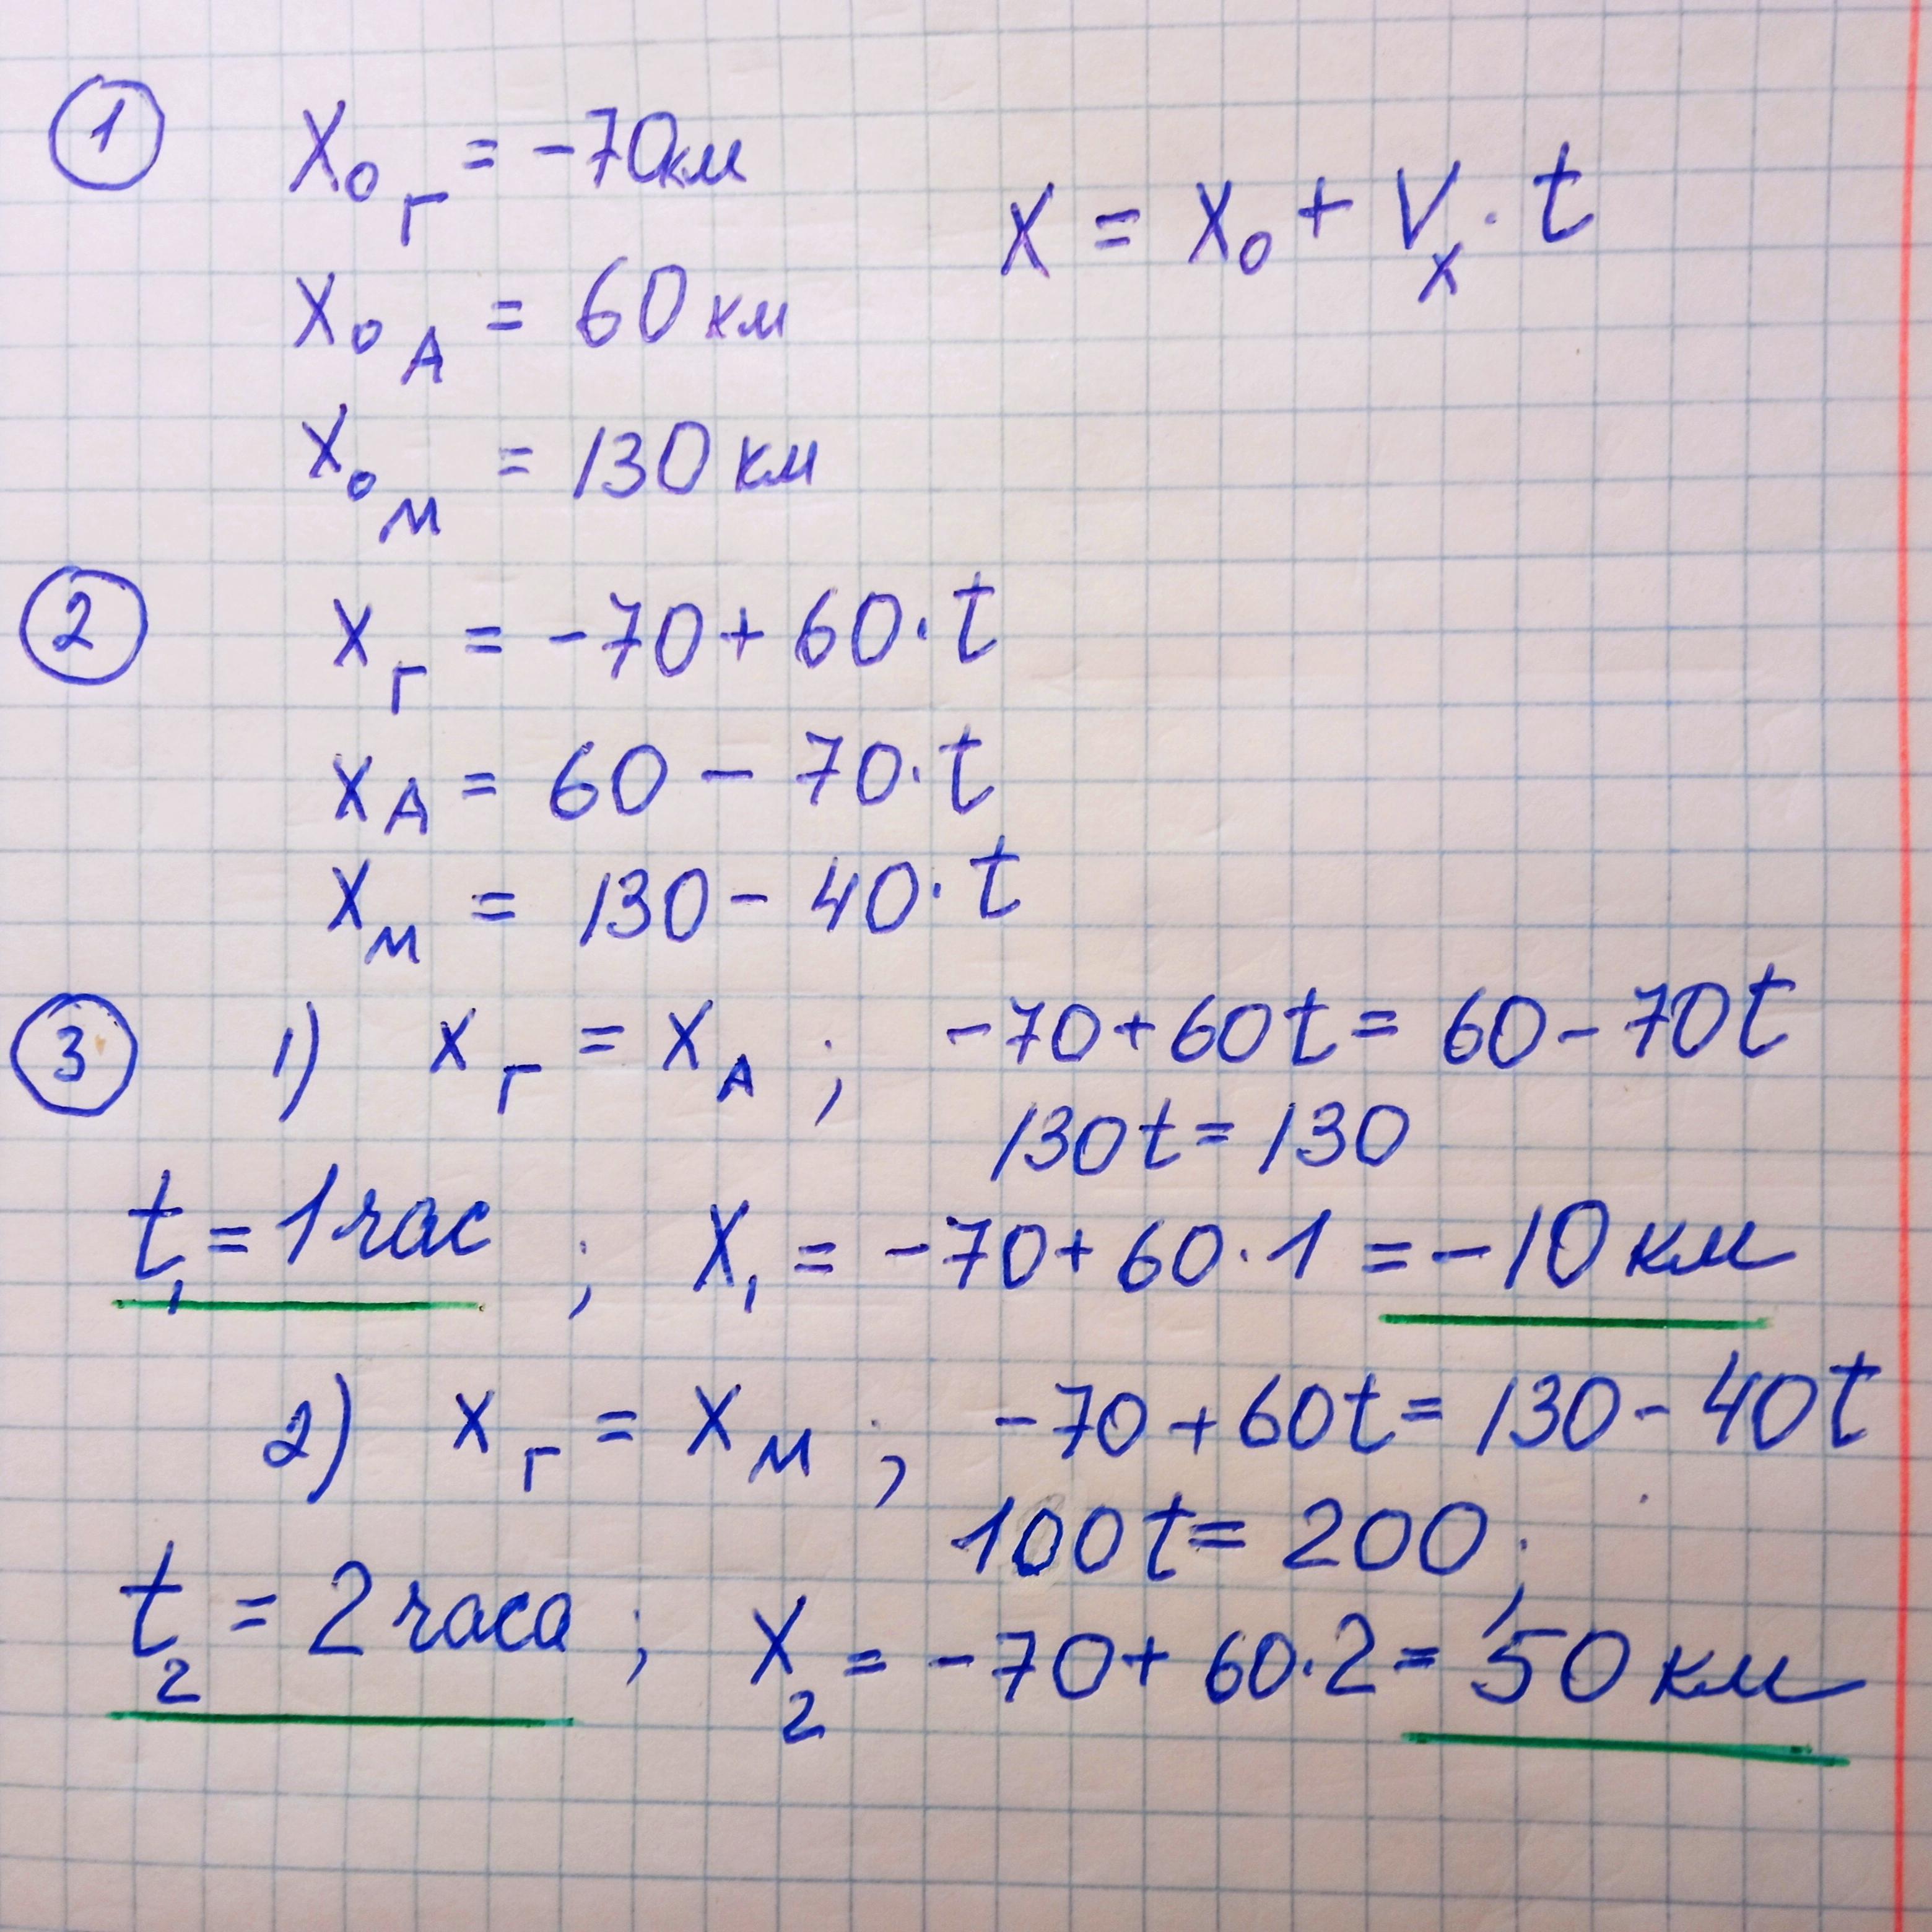 ① X₀г = -70км
X = X₀ + Vₓ · t
X₀А = 60 км
X₀м = 130 км
② xг = -70 + 60 · t
xА = 60 - 70 · t
xм = 130 - 40 · t
③ 1) xг = xА ; -70 + 60t = 60 - 70t
130t = 130
t₁ = 1 час ; X₁ = -70 + 60 · 1 = -10 км
2) xг = xм ; -70 + 60t = 130 - 40t
100t = 200 ;
t₂ = 2 часа ; X₂ = -70 + 60 · 2 = 50 км